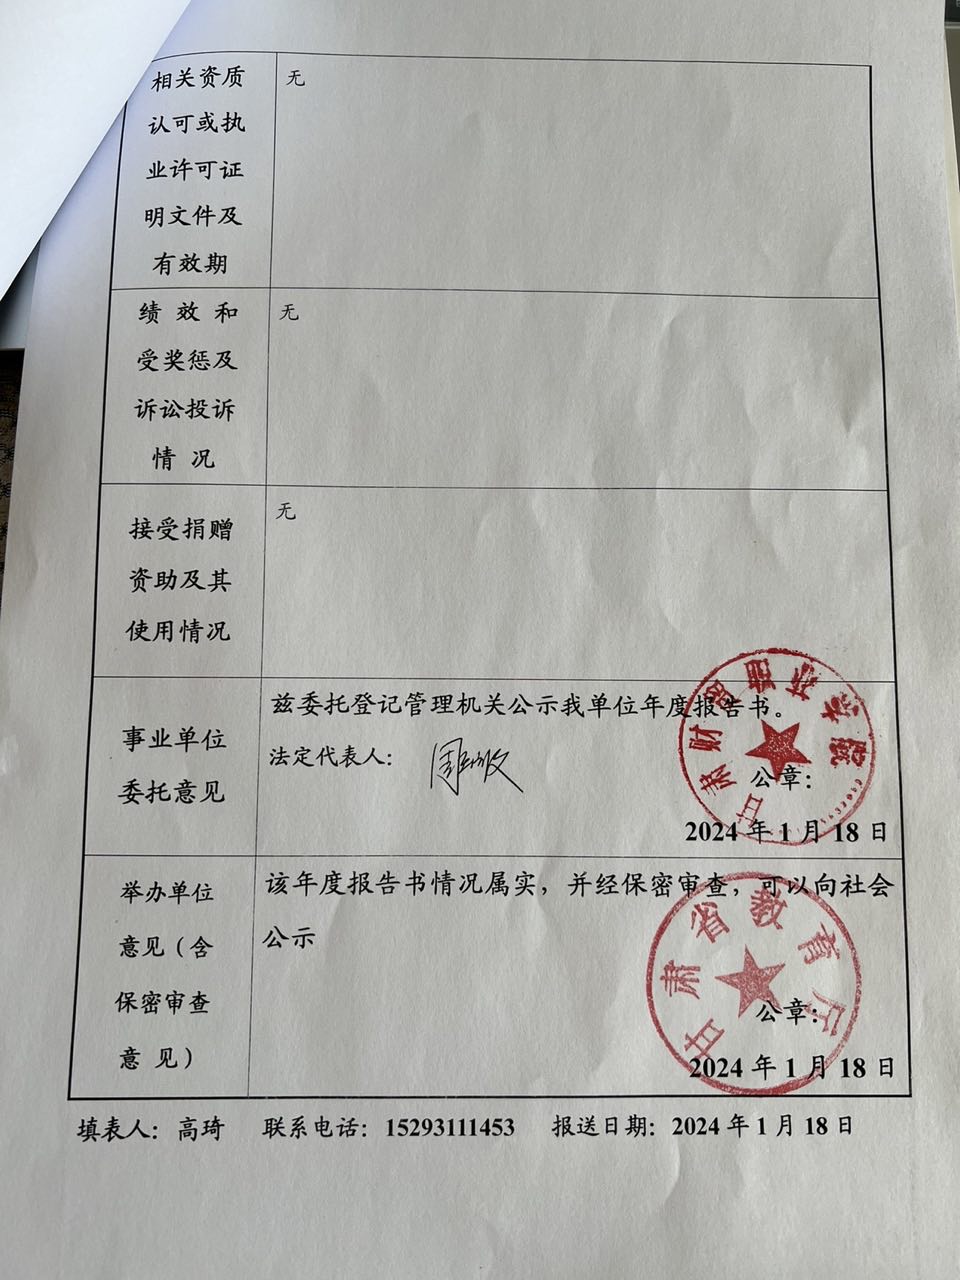 相关资质
认可或执
业许可证
明文件及
有效期
无
绩效和
受奖惩及
诉讼投诉
情况
无
接受捐赠
资助及其
使用情况
无
事业单位
委托意见
兹委托登记管理机关公示我单位年度报告书。
法定代表人：
公章：
2024年1月18日
甘肃财贸
学院
举办单位
意见（含
保密审查
意见）
该年度报告书情况属实，并经保密审查，可以向社会
公示
公章：
2024年1月18日
甘肃省教育厅
填表人：高琦 联系电话：15293111453 报送日期：2024年1月18日